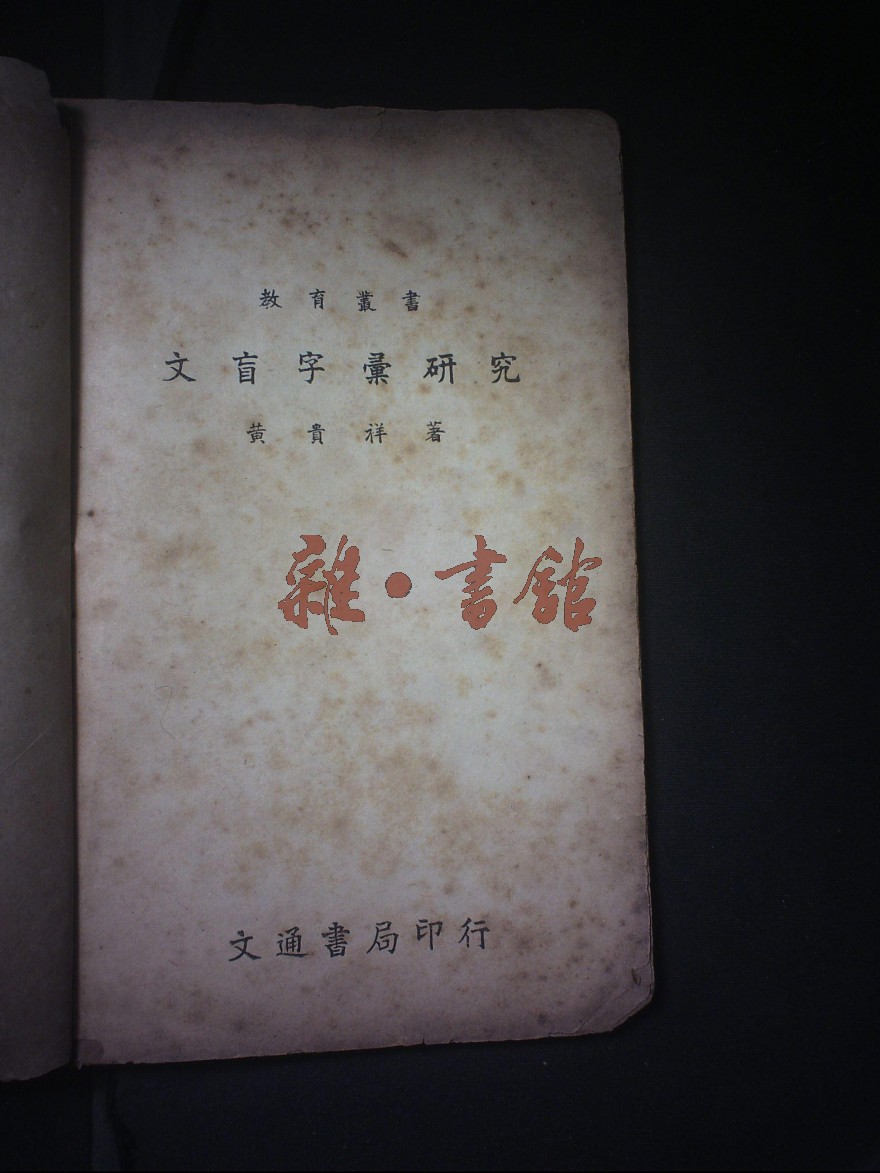 教育叢書
文盲字彙研究
黃貴祥著
雜·書館
文通書局印行